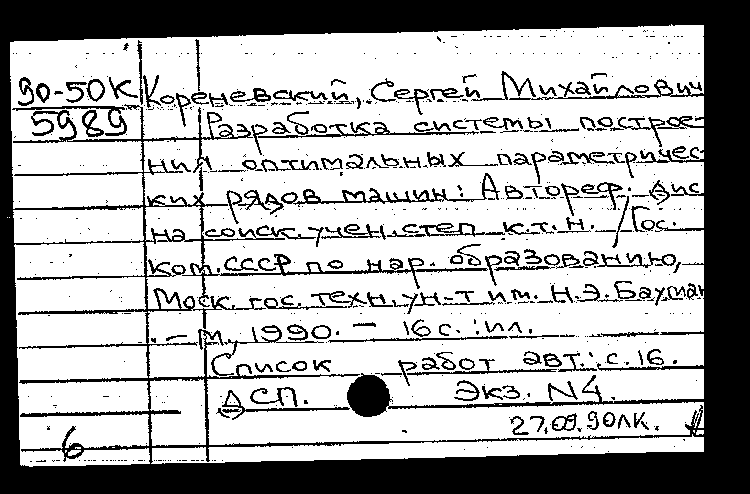 90-50К Кореневский, Сергей Михайлович
5989 Разработка системы построе-
ния оптимальных параметричес-
ких рядов машин: Автореф. дис
на соиск. учен. степ к.т.н. / Гос.
ком. СССР по нар. образованию,
Моск. гос. техн. ун-т им. Н.Э. Бауман
. - М., 1990. - 16 с. : ил.
Список работ авт.: с. 16.
ДСП. Экз. N4.
27.09.90ЛК.
6